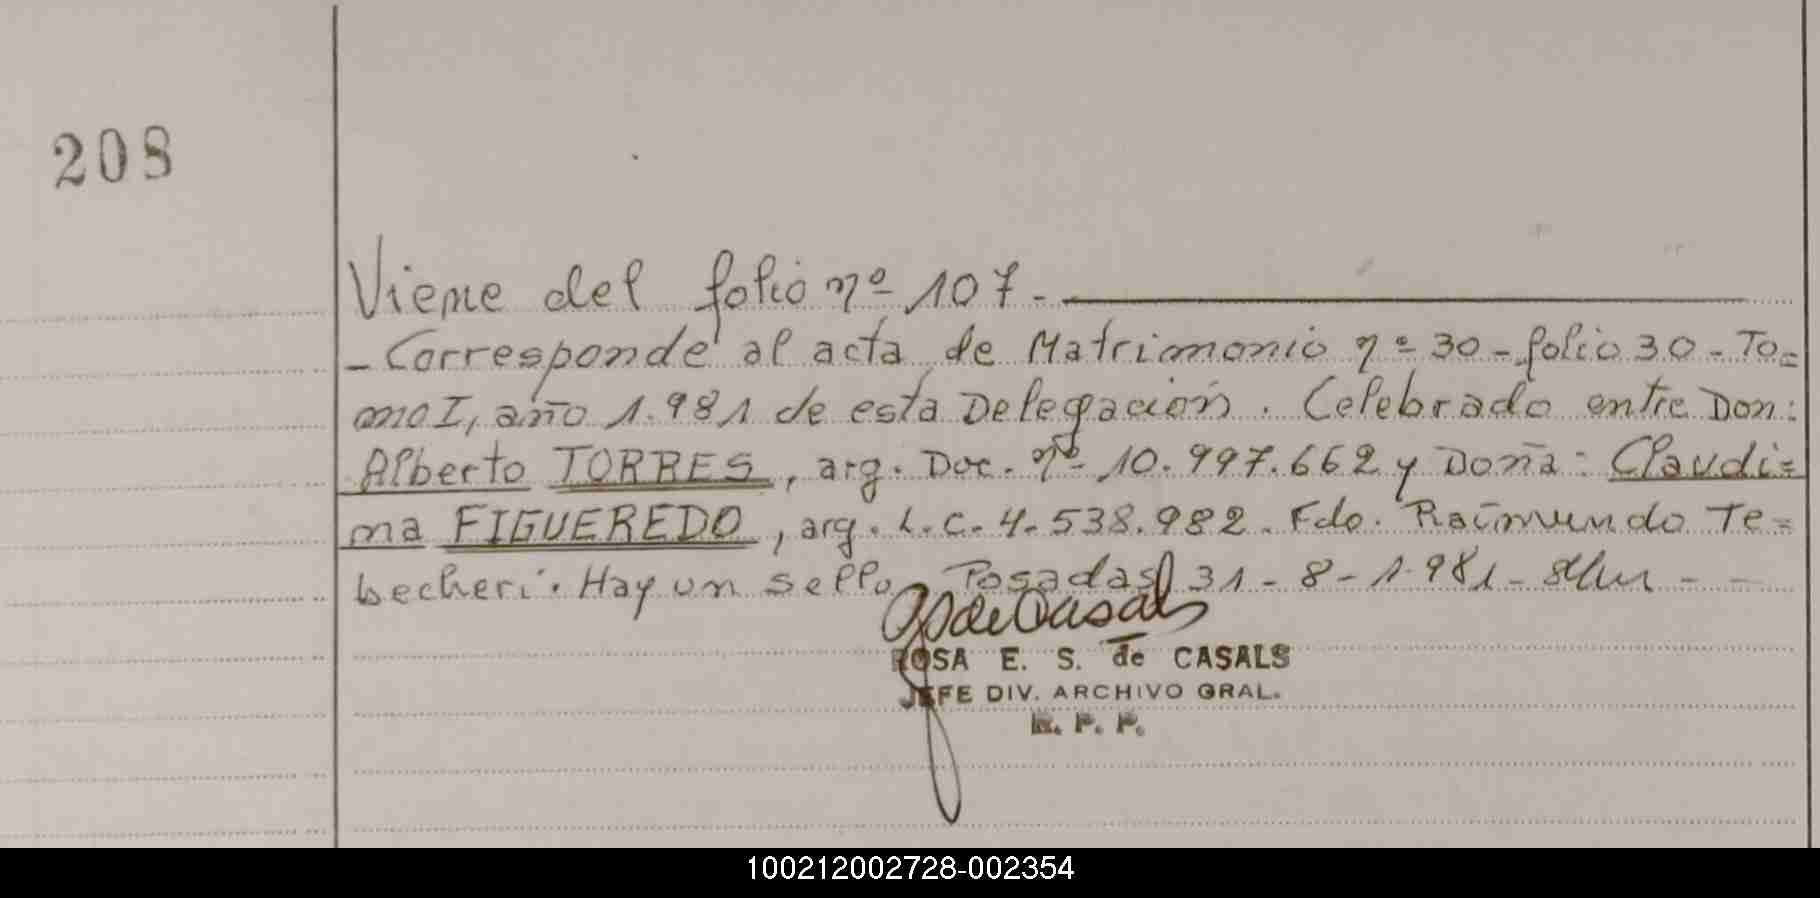 208
Viene del folio nº 107.-
- Corresponde al acta de Matrimonio nº 30 - folio 30 - To=
mo I, año 1.981 de esta Delegación. Celebrado entre Don:
Alberto TORRES, arg. Doc. nº 10.997.662 y Doña: Claudi=
na FIGUEREDO, arg. L.C. 4.538.982. Fdo. Raimundo Te=
becheri. Hay un sello. Posadas, 31-8-1.981-
ROSA E. S. de CASALS
JEFE DIV. ARCHIVO GRAL.
R. P. P.
100212002728-002354